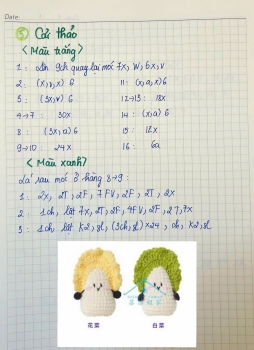 Date:
5 Cải thảo
<Màu trắng>
1: lên 9ch quay lại mới 7x, W, 6x, V
2: (x, v, x) 6
11: (x, a, x) 6
3: (3x, v) 6
12→13: 18x
4→7: 30x
14: (x, a) 6
8: (3x, a) 6
15: 12x
9→10: 24x
16: 6a
<Màu xanh>
Lá sau móc ở hàng 8→9:
1: 2x, 2T, 2F, 7FV, 2F, 2T, 2x
2: 1ch, lật 7x, 2T, 2F, 4FV, 2F, 2T, 7x
3: 1ch, lật k2, sl, (3ch, sl) x24, ch, k2, sl
花菜
白菜